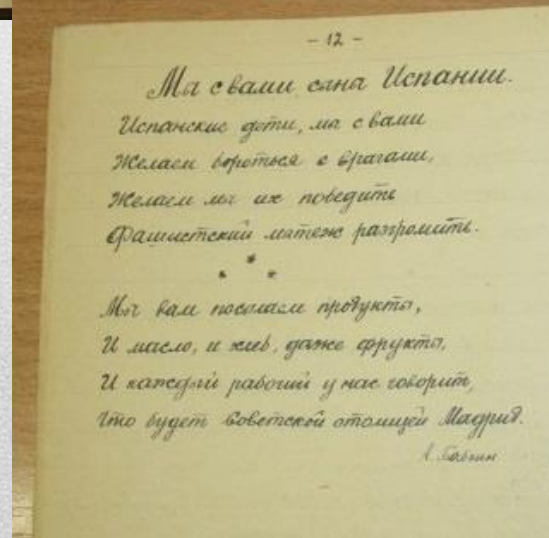 - 12 -
Мы с вами сына Испании.
Испанские дети, мы с вами
Желаем бороться с врагами,
Желаем мы их победить
Фашистский мятеж разгромить.
* * *
Мы вам посылаем продукты,
И масло, и хлеб, даже фрукты,
И каждый рабочий у нас говорит,
Что будет Советской столицей Мадрид.